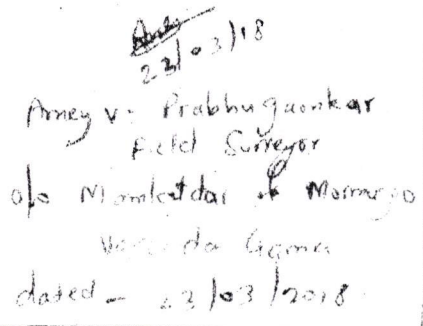 23/03/18
Amey V. Prabhugaonkar
Field Surveyor
o/o Mamlatdar of Mormugao
Vasco da Gama
dated - 23/03/2018